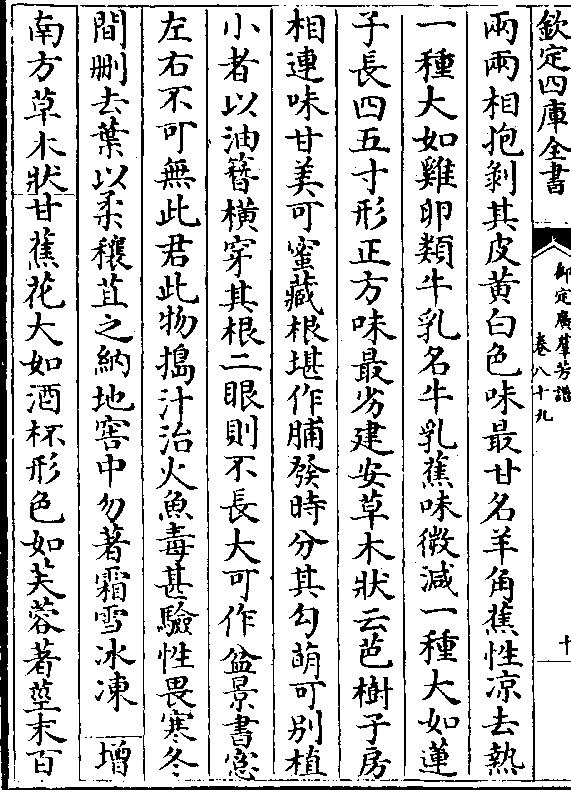 欽定四庫全書
御定廣羣芳譜
卷八十九
十
兩兩相抱剝其皮黄白色味最甘名羊角蕉性凉去熱
一種大如雞卵類牛乳名牛乳蕉味微減一種大如蓮
子長四五寸形正方味最劣建安草木狀云芭樹子房
相連味甘美可蜜藏根堪作脯發時分其勾萌可别植
小者以油簪横穿其根二眼則不長大可作盆景書窓
左右不可無此君此物搗汁治火魚毒甚驗性畏寒冬
間删去葉以柔穰苴之納地窖中勿著霜雪冰凍 增
南方草木狀甘蕉花大如酒杯形色如芙蓉著莖末百